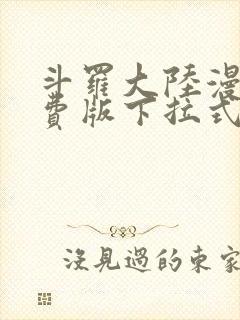 斗羅大陸漫
費版下拉式
沒見過的東家